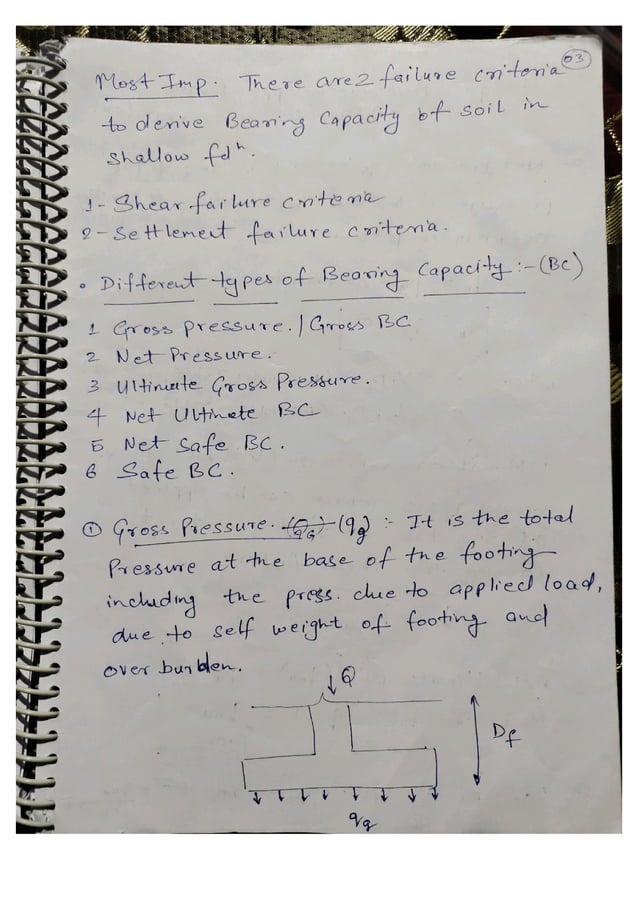 03
Most Imp. There are 2 failure criteria
to derive Bearing Capacity of soil in
shallow fdn.
1- Shear failure criteria
2- Settlement failure criteria.
• Different types of Bearing Capacity :- (BC)
1 Gross pressure. / Gross BC
2 Net Pressure.
3 Ultimate Gross Pressure.
4 Net Ultimate BC
5 Net Safe BC.
6 Safe BC.
① Gross Pressure. (qg) :- It is the total
Pressure at the base of the footing
including the press. due to applied load,
due to self weight of footing and
over burden.
Q
Df
qg